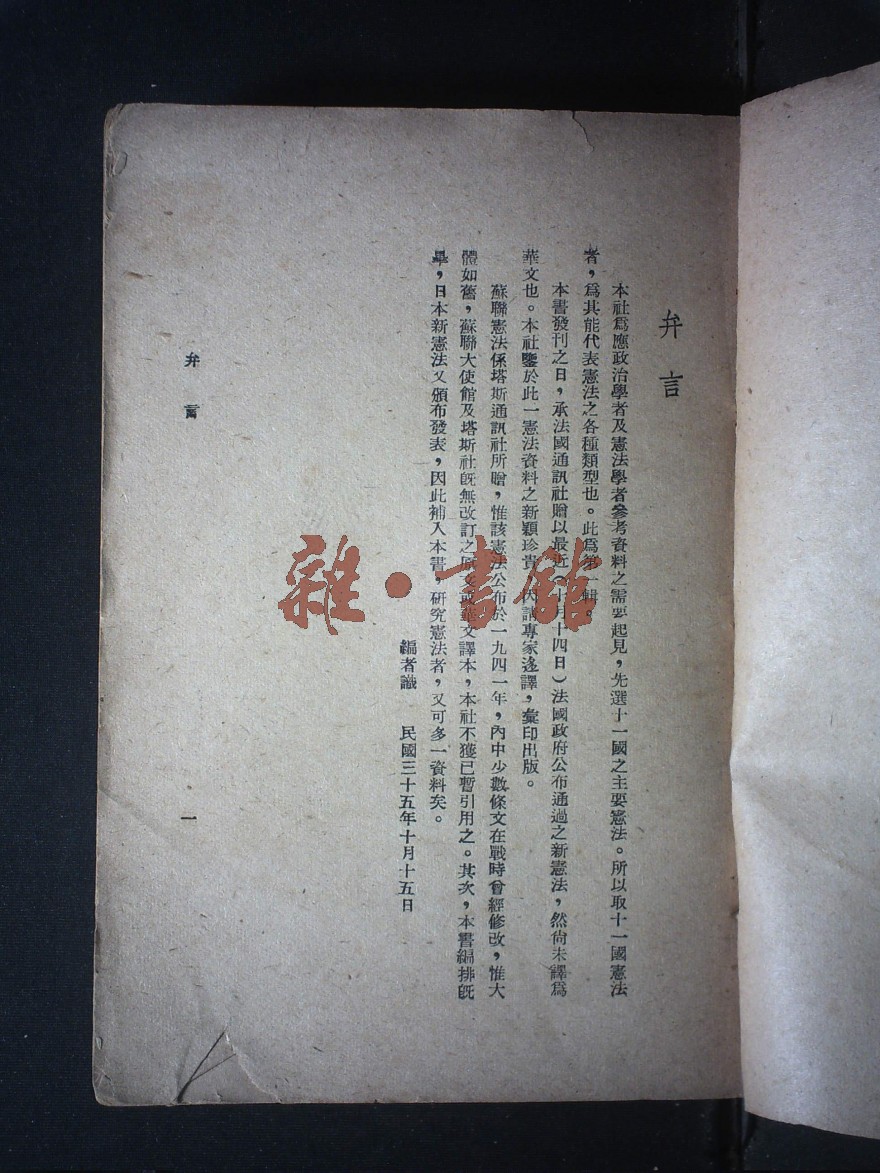 弁言
本社爲應政治學者及憲法學者參考資料之需要起見，先選十一國之主要憲法。所以取十一國憲法
者，爲其能代表憲法之各種類型也。此爲第一輯。
本書發刊之日，承法國通訊社贈以最近（十月十四日）法國政府公布通過之新憲法，然尙未譯爲
華文也。本社鑒於此一憲法資料之新穎珍貴，因請專家迻譯，彙印出版。
蘇聯憲法係塔斯通訊社所贈，惟該憲法公布於一九四一年，內中少數條文在戰時曾經修改，惟大
體如舊，蘇聯大使館及塔斯社旣無改訂之原文或華文譯本，本社不獲已暫引用之。其次，本書編排旣
畢，日本新憲法又頒布發表，因此補入本書，研究憲法者，又可多一資料矣。
編者識　民國三十五年十月十五日
弁言
一
雜·書館